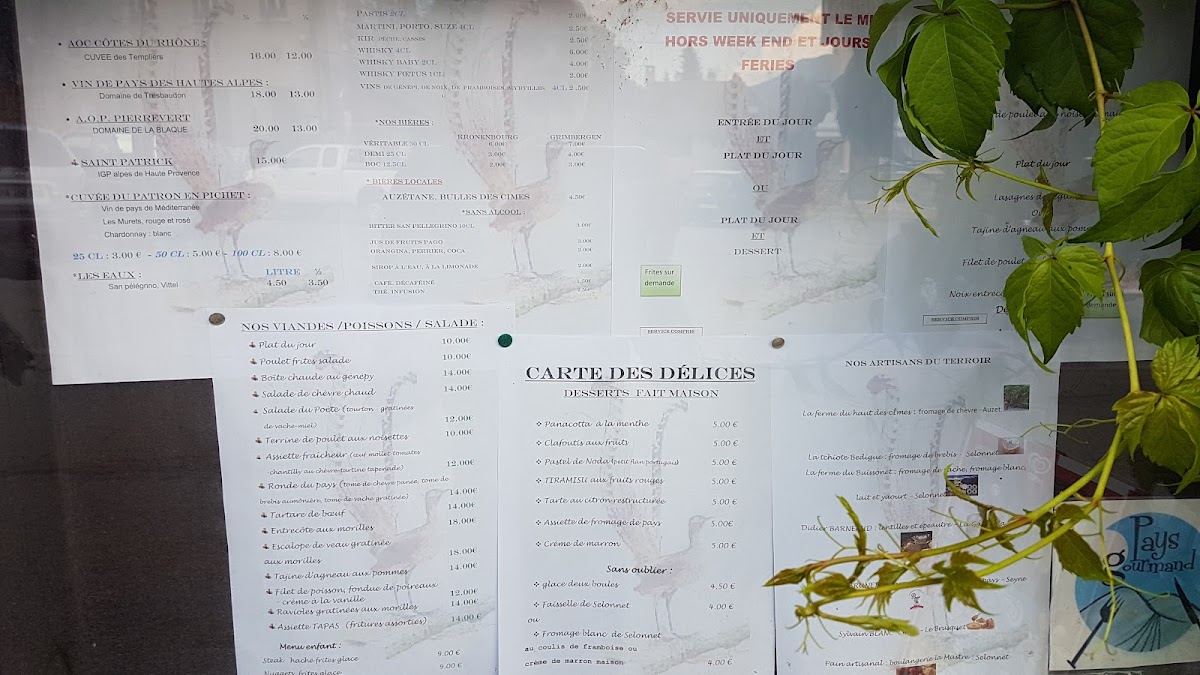 AOC CÔTES DU RHÔNE :
CUVEE des Templiers 16.00 12.00
VIN DE PAYS DES HAUTES ALPES :
Domaine de Tresbaudon 18.00 13.00
A.O.P. PIERREVERT
DOMAINE DE LA BLAQUE 20.00 13.00
SAINT PATRICK 15.00€
IGP alpes de Haute Provence
*CUVÉE DU PATRON EN PICHET :
Vin de pays de Méditerranée
Les Murets, rouge et rosé
Chardonnay : blanc
25 CL : 3.00 € - 50 CL : 5.00 € - 100 CL : 8.00 €
*LES EAUX : LITRE ½
San pélégrino, Vittel 4.50 3.50
PASTIS 2CL 2.00€
MARTINI, PORTO, SUZE 4CL 2.50€
KIR PÊCHE, CASSIS 2.50€
WHISKY 4CL 6.00€
WHISKY BABY 2CL 4.00€
WHISKY POTUS 1CL 2.00€
VINS DE GÉNÉPI, DE NOIX, DE FRAMBOISES MYRTILLES 4CL 2.50€
*NOS BIÈRES :
KRONENBOURG GRIMBERGEN
VÉRITABLE 50 CL 6.00€ 7.00€
DEMI 25 CL 3.00€ 4.00€
BOC 12.5CL 2.00€ 3.00€
* BIÈRES LOCALES
AUZÉTANE, BULLES DES CIMES 4.50€
*SANS ALCOOL :
BITTER SAN PELLEGRINO 10CL 3.00€
JUS DE FRUITS PAGO 3.00€
ORANGINA, PERRIER, COCA 2.00€
SIROP À L'EAU, À LA LIMONADE 2.00€
CAFÉ, DÉCAFÉINÉ 1.50€
THÉ, INFUSION
SERVIE UNIQUEMENT LE
HORS WEEK END ET JOURS
FERIES
ENTRÉE DU JOUR
ET
PLAT DU JOUR
OU
PLAT DU JOUR
ET
DESSERT
Frites sur
demande
SERVICE COMPRIS
de poulet aux
Plat du jour
Lasagnes
Tajine d'agneau aux pommes
Filet de poulet
Noix
demande
SERVICE COMPRIS
NOS VIANDES /POISSONS / SALADE :
Plat du jour 10.00€
Poulet frites salade 10.00€
Boite chaude au génepy 14.00€
Salade de chèvre chaud 14.00€
Salade du Poete (tourton gratinées
de vache-miel) 12.00€
Terrine de poulet aux noisettes 10.00€
Assiette fraîcheur (œuf mollet tomates
chantilly au chèvre tartine tapenade) 12.00€
Ronde du pays (tome de chèvre panée, tome de
brebis aumônière, tome de vache gratinée) 14.00€
Tartare de bœuf 14.00€
Entrecôte aux morilles 18.00€
Escalope de veau gratinée
aux morilles 18.00€
Tajine d'agneau aux pommes 14.00€
Filet de poisson, fondue de poireaux
crème à la vanille 12.00€
Ravioles gratinées aux morilles 14.00€
Assiette TAPAS (fritures assorties) 14.00 €
Menu enfant :
Steak haché frites glace 9.00€
Nuggets frites glace 9.00€
CARTE DES DÉLICES
DESSERTS FAIT MAISON
Panacotta à la menthe 5.00 €
Clafoutis aux fruits 5.00€
Pastel de Nada (petit flan portugais) 5.00€
TIRAMISU aux fruits rouges 5.00€
Tarte au citron restructurée 5.00€
Assiette de fromage de pays 5.00€
Crème de marron 5.00 €
Sans oublier :
glace deux boules 4,50 €
Faisselle de Selonnet 4.00 €
ou
Fromage blanc de Selonnet
au coulis de framboise ou
crème de marron maison 4.00 €
NOS ARTISANS DU TERROIR
La ferme du haut des cîmes : fromage de chèvre -Auzet
La tchiote Bedigue : fromage de brebis - Selonnet
La ferme du Buissonet : fromage de vache, fromage blanc,
lait et yaourt - Selonnet
Didier : lentilles et épeautre -
pays - Seyne
Sylvain - Le Brusquet
Pain artisanal : boulangerie la Mastre : Selonnet
Pays
gourmand